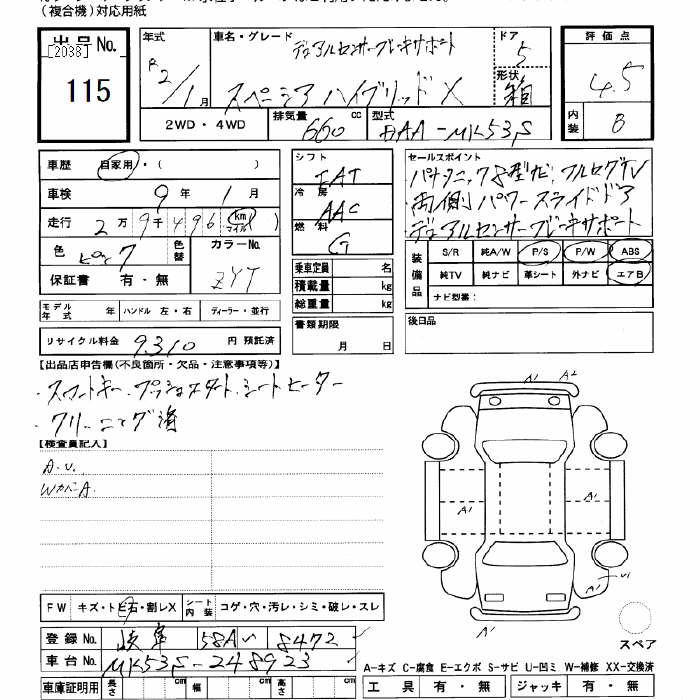 (複合機)対応用紙
出品No.
[2038]
115
年式
R2/1月
車名・グレード
デュアルセンサーブレーキサポート
スペーシア ハイブリッド X
ドア
5
形状
箱
評価点
4.5
内装
B
2WD・4WD
排気量
660 cc
型式
DAA-MK53S
車歴
自家用・( )
車検
9年1月
走行
2万9千496 km マイル
色
ピンク
色替
カラーNo.
ZYT
保証書 有・無
シフト
FAT
冷房
AAC
燃料
G
乗車定員 名
積載量 kg
総重量 kg
書類期限
月 日
セールスポイント
パナソニック8型ナビ フルセグTV
両側パワースライドドア
デュアルセンサーブレーキサポート
装備品
S/R 純A/W P/S P/W ABS
純TV 純ナビ 革シート 外ナビ エアB
ナビ型番:
後日品
モデル年式 年 ハンドル 左・右 ディーラー・並行
リサイクル料金 9310 円 預託済
【出品店申告欄(不良箇所・欠品・注意事項等)】
・スマートキー.プッシュスタート.シートヒーター
・クリーニング済
【検査員記入】
A.U.
WカバーA.
A1 A2
A1
A1
A1
A1 U1
A1
スペア
FW キズ・トビ石・割レX シート内装 コゲ・穴・汚レ・シミ・破レ・スレ
登録No. 岐阜 581 い 8472
車台No. MK53S-248923
車庫証明用 長さ cm 幅 cm 高さ cm
A-キズ C-腐食 E-エクボ S-サビ U-凹ミ W-補修 XX-交換済
工具 有・無 ジャッキ 有・無